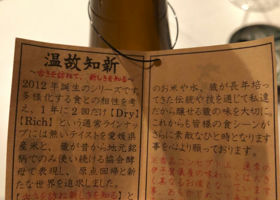 温故知新
～古きを訪ねて、新しきを知る～
2012年誕生のシリーズです。
多様化する食との相性を考
え、1年に2回だけ【Dry】
【Rich】という通常ラインナッ
プには無いテイストを愛媛県
産米と、蔵が昔から地元銘
柄でのみ使い続ける協会酵
母で表現し、原点回帰と新
たな世界を追求しました。
のお米や水、蔵が長年培っ
てきた伝統や技を通じて私達
だから醸せる蔵の味を大切に、
これからも皆様の食シーンが
さらに素敵なひと時となります
事を心より願っております。